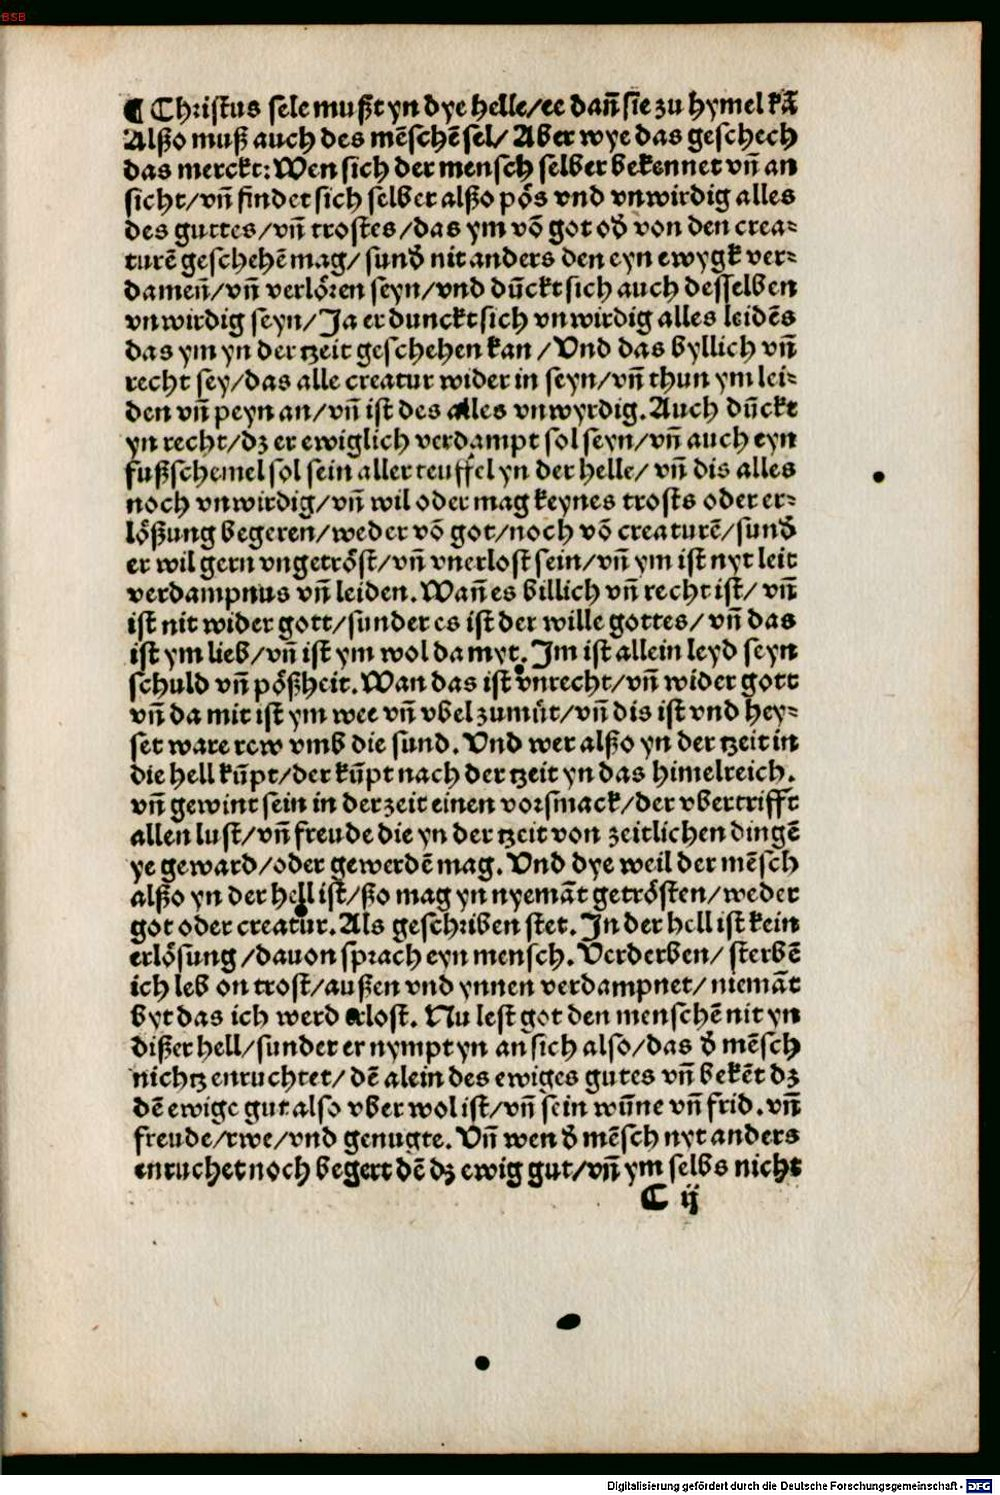 BSB
¶ Christus sele mußt yn dye helle/ee dañ sie zu hymel kã
Alßo muß auch des mẽschẽ sel/ Aber wye das geschech
das merckt: Wen sich der mensch selber bekennet vñ an
sicht/vñ findet sich selber alßo pös vnd vnwirdig alles
des guttes/vñ trostes/das ym võ got od̕ von den crea⸗
turẽ geschehẽ mag/ sund̕ nit anders den eyn ewygk ver⸗
dameñ/vñ verlören seyn/vnd dũckt sich auch desselben
vnwirdig seyn/Ja er dunckt sich vnwirdig alles leidẽs
das ym yn der tzeit geschehen kan/Vnd das byllich vñ
recht sey/das alle creatur wider in seyn/vñ thun ym lei⸗
den vñ peyn an/vñ ist des alles vnwyrdig. Auch dũckt
yn recht/dz er ewiglich verdampt sol seyn/vñ auch eyn
fußschemel sol sein aller teuffel yn der helle/ vñ dis alles
noch vnwirdig/vñ wil oder mag keynes trosts oder er⸗
lößung begeren/weder võ got/noch võ creaturẽ/sund̕
er wil gern vngetröst/vñ vnerlost sein/vñ ym ist nyt leit
verdampnus vñ leiden. Wañ es billich vñ recht ist/ vñ
ist nit wider gott/sunder es ist der wille gottes/vñ das
ist ym lieb/vñ ist ym wol da myt. Im ist allein leyd seyn
schuld vñ pößheit. Wan das ist vnrecht/vñ wider gott
vñ da mit ist ym wee vñ vbel zumüt/vñ dis ist vnd hey⸗
set ware rew vmb die sund. Vnd wer alßo yn der tzeit in
die hell kũpt/der kũpt nach der tzeit yn das himelreich.
vñ gewint sein in der zeit einen vorsmack/der vbertrifft
allen lust/vñ freude die yn der tzeit von zeitlichen dingẽ
ye geward/oder gewerdẽ mag. Vnd dye weil der mẽsch
alßo yn der hell ist/ßo mag yn nyemãt getrösten/weder
got oder creatur. Als geschriben stet. In der hell ist kein
erlösung/dauon sprach eyn mensch. Verderben/ sterbẽ
ich leb on trost/außen vnd ynnen verdampnet/ niemãt
byt das ich werd erlost. Nu lest got den menschẽ nit yn
dißer hell/sunder er nympt yn an sich also/das d̕ mẽsch
nichtz enruchtet/dẽ alein des ewiges gutes vñ bekẽt dz
dẽ ewige gut also vber wol ist/vñ sein wũne vñ frid. vñ
freude/rwe/vnd genugte. Vñ wen d̕ mẽsch nyt anders
enruchet noch begert dẽ dz ewig gut/vñ ym selbs nicht
C ij
Digitalisierung gefördert durch die Deutsche Forschungsgemeinschaft - DFG